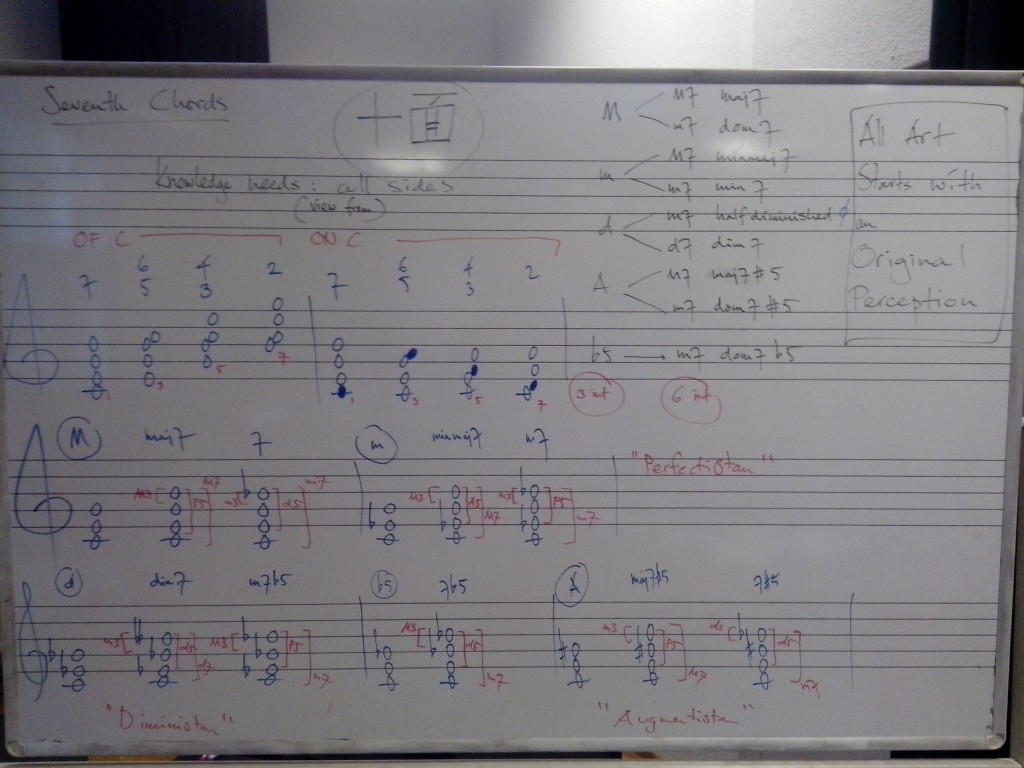 Seventh Chords
Knowledge needs: all sides
(view from)
M M7 maj7
m7 dom7
m M7 minmaj7
m7 min7
d m7 halfdiminished ø
d7 dim7
A M7 maj7#5
m7 dom7#5
b5 → m7 dom7 b5
3 int 6 int
All Art
Starts with
an
Original
Perception
OF C ON C
7 6 4 2 7 6 4 2
5 3 5 3
1 3 5 7 1 3 5 7
M maj7 7 m minmaj7 m7
"Perfectistan"
M3 P5 M7 m3 d5 m7 M3 d5 M7 m3 P5 m7
d dim7 m7b5 b5 7b5 A maj7#5 7#5
m3 d5 d7 M3 P5 m7 M3 d5 m7 m3 P5 M7 d3 d5 m7
"Diministan" "Augmentistan"